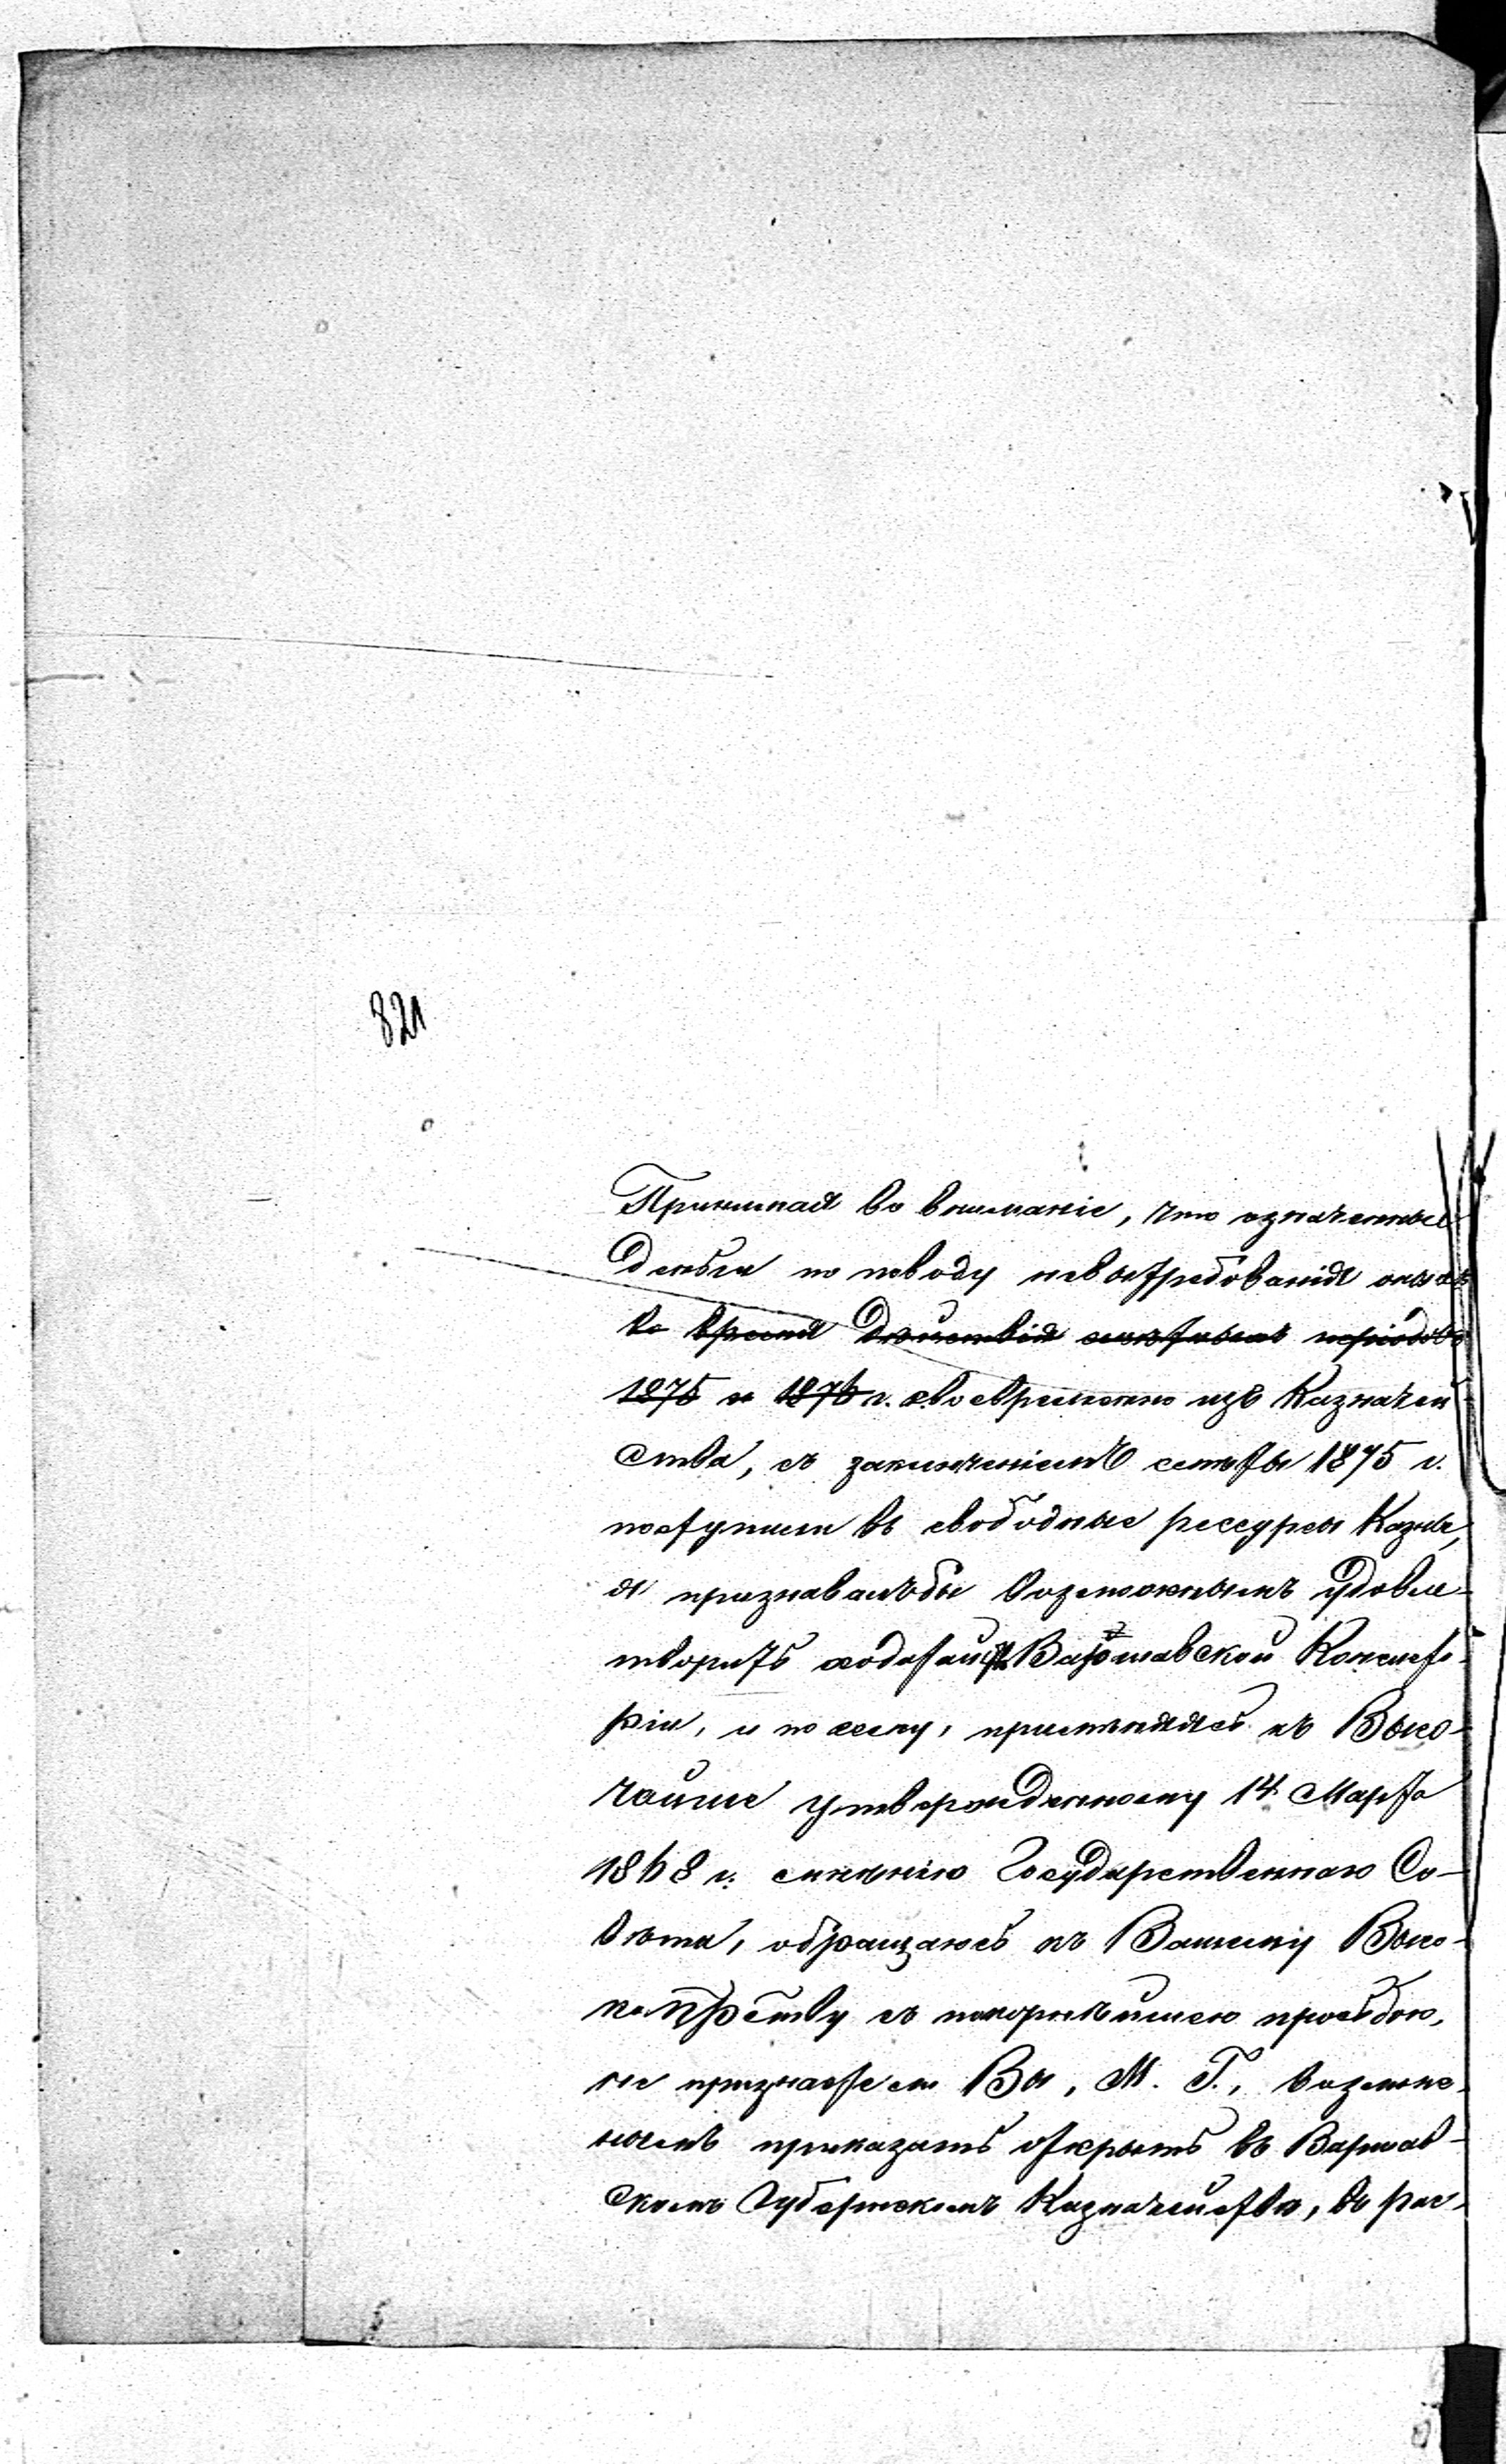 821
Принимая во вниманіе, что означенные
деньги по поводу невытребованія оныхъ
во время дѣйствія смѣтныхъ періодовъ
1875 и 1876 г. своевременно изъ Казначей
ства, съ заключеніемъ смѣты 1875 г.
поступили въ свободные рессурсы Казны,
я признавалъ бы возможнымъ удовле-
творить ходатайст. Варшавской Консисто-
ріи, и по сему, примѣняясь къ Высо-
чайше утвержденному 14 Марта
1868 г. мнѣнію Государственнаго Со-
вѣта, обращаюсь къ Вашему Высо-
копрству съ покорнѣйшею просьбою,
не признаете ли Вы, М. Г., возмож-
нымъ приказать открыть въ Варшав-
скомъ Губернскомъ Казначействѣ, въ рас-